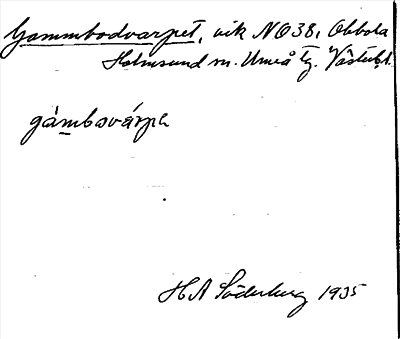 Gammbodvarpet, vik NO38, Obbola
Holmsund sn. Umeå tg. Västerb.l.
gámbovárpe
H A Söderberg 1935